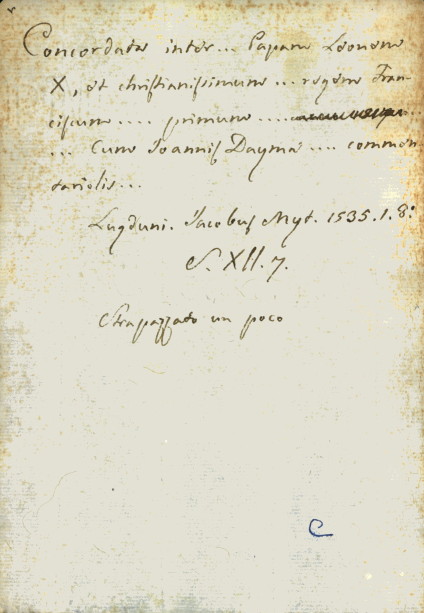 Concordata inter... Papam Leonem
X, et christianissimum... regem Fran-
ciscum.... primum....
... Cum Joannis Dayma.... commen-
tariolis...
Lugduni. Jacobus Myt. 1535. 1. 8:
S. XII. 7.
Strapazzato un poco
C